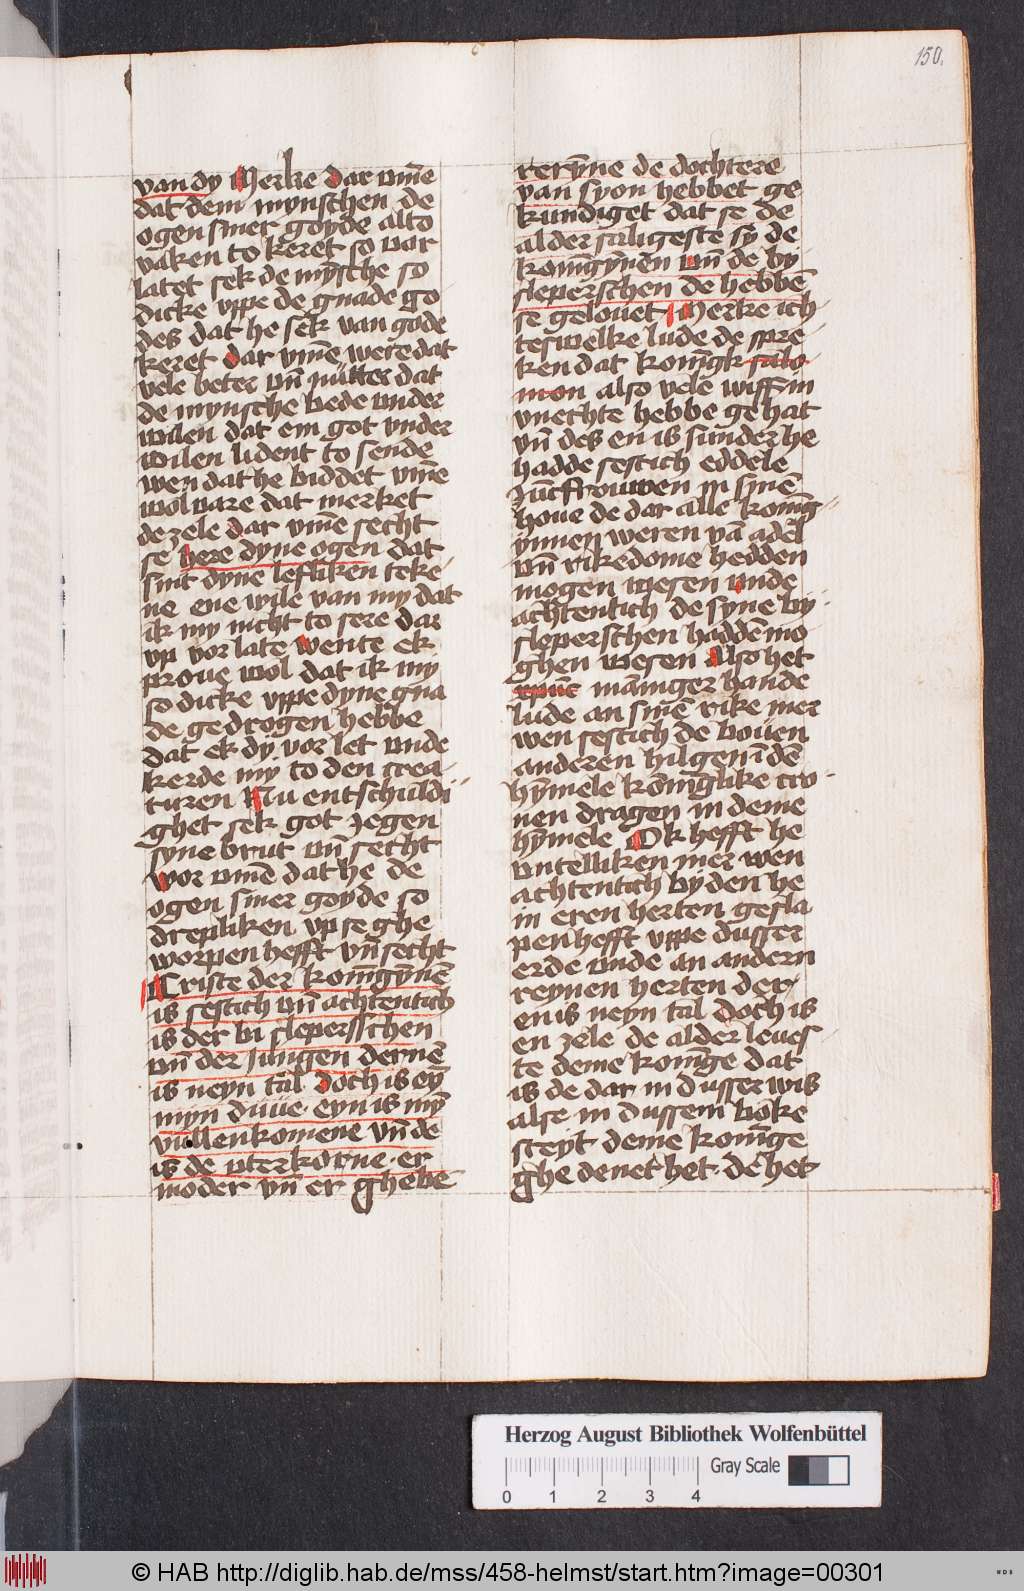 150.
van dy Merke dar vm̄e
dat dem mynschen de
ogen siner goyde alto
vaken to keret so vor
latet sek de mȳsche so
dicke vppe de gnade go
des dat he sek van gode
keret dar vm̄e were dat
vele beter vn̄ nutter dat
de mynsche bede vnder
wilen dat em got vnder
wilen lident to sende
wen dat he biddet vm̄e
wolvare dat merket
de zele dar vm̄e secht
se here dyne ogen dat
sint dyne lefliken teke
ne ene wile van my dat
ik my nicht to sere dar
vp vor late wente ek
prove wol dat ik my
so dicke vppe dyne gna
de gedrogen hebbe
dat ek dy vor let vnde
kerde my to den crea
turen Nu entschuldi
ghet sek got jegen
syne brut vn̄ secht
wor vmē dat he de
ogen siner goyde so
drepliken vp se ghe
worpen hefft vn̄ secht
Criste der konīgȳnē
is sestich vn̄ achtentich
is der bi slepersschen
vn̄ der Jungen dernē
is neyn tal doch is eȳ
myn duue eyn is mȳ
vullenkomene vn̄ de
is de vterkorne er
moder vn̄ er ghebē
rerȳne de dochtere
van syon hebbet ge
kundiget dat se de
alder saligeste sy de
konīgȳnen vn̄ de by
sleperschen de hebbē
se gelouet Merke ich
teswelke lude de spre
ken dat konīgk salo
mon also vele wiff in
vnechte hebbe gehat
vn̄ des en is sunder he
hadde sestich eddele
Jūcfrouwen in sinē
houe de dar alle konīg
ynnen weren vā adel
vn̄ rikedome hedden
mogen wesen vnde
achtentich de syne by
sleperschen haddē mo
ghen wesen Also het
xpūs manniger hande
lude an sinē rike mer
wen sestich de bouen
anderen hilgen ī dē
hȳmele konīglike cro
nen dragen in deme
hȳmele Ok hefft he
vntelliken mer wen
achtentich by den he
in eren herten gesla
pen hefft vppe dusser
erde vnde an andern
reynen herten der
en is neyn tal Doch is
en zele de alder leues
te deme konīge dat
is de dar in dusser wis
alse in dussem boke
steyt deme konīge
ghe denet het de het
Herzog August Bibliothek Wolfenbüttel
Gray Scale
0 1 2 3 4
© HAB http://diglib.hab.de/mss/458-helmst/start.htm?image=00301